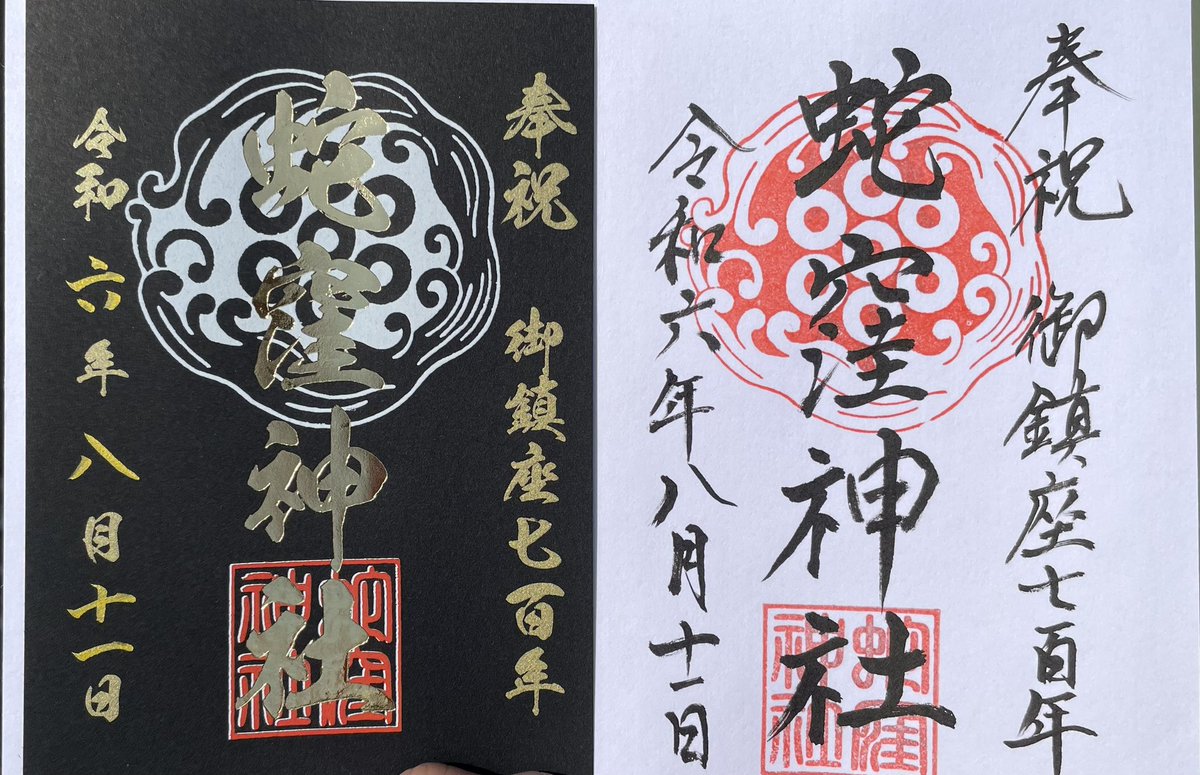 奉祝 御鎮座七百年
蛇窪神社
蛇窪神社
令和六年八月十一日
奉祝 御鎮座七百年
蛇窪神社
蛇窪神社
令和六年八月十一日